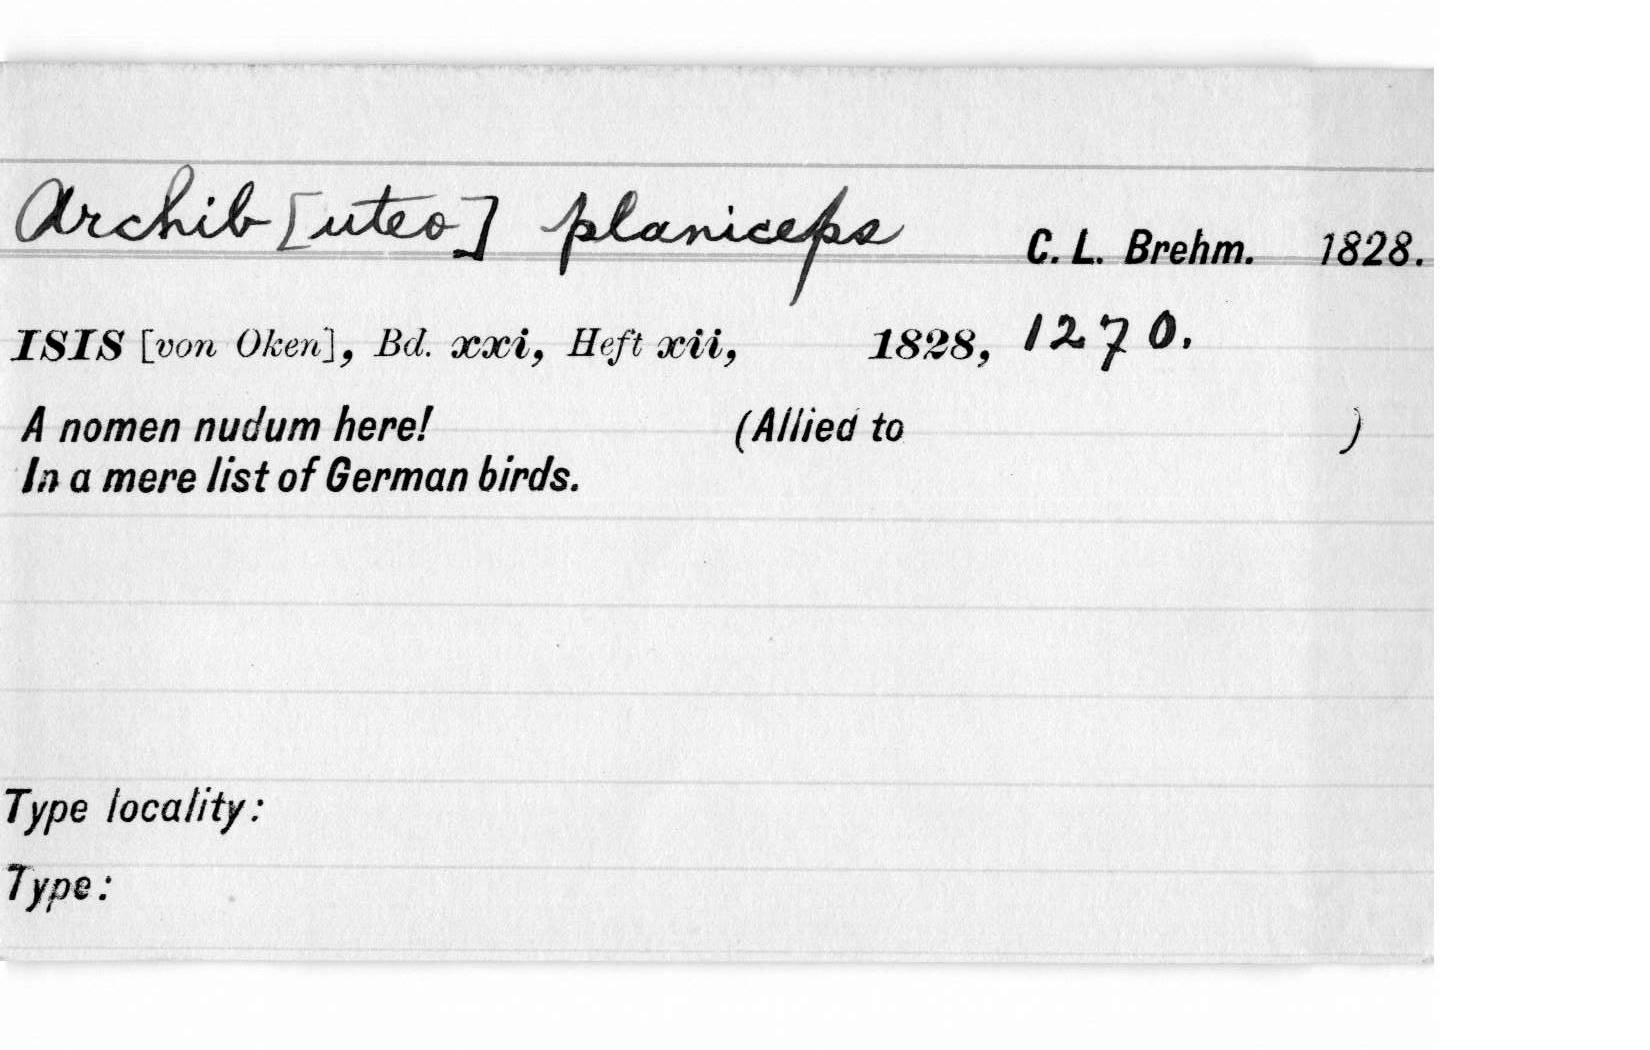 Archib[uteo] planiceps C. L. Brehm. 1828.
ISIS [von Oken], Bd. xxi, Heft xii, 1828, 1270.
A nomen nudum here! (Allied to )
In a mere list of German birds.
Type locality:
Type: